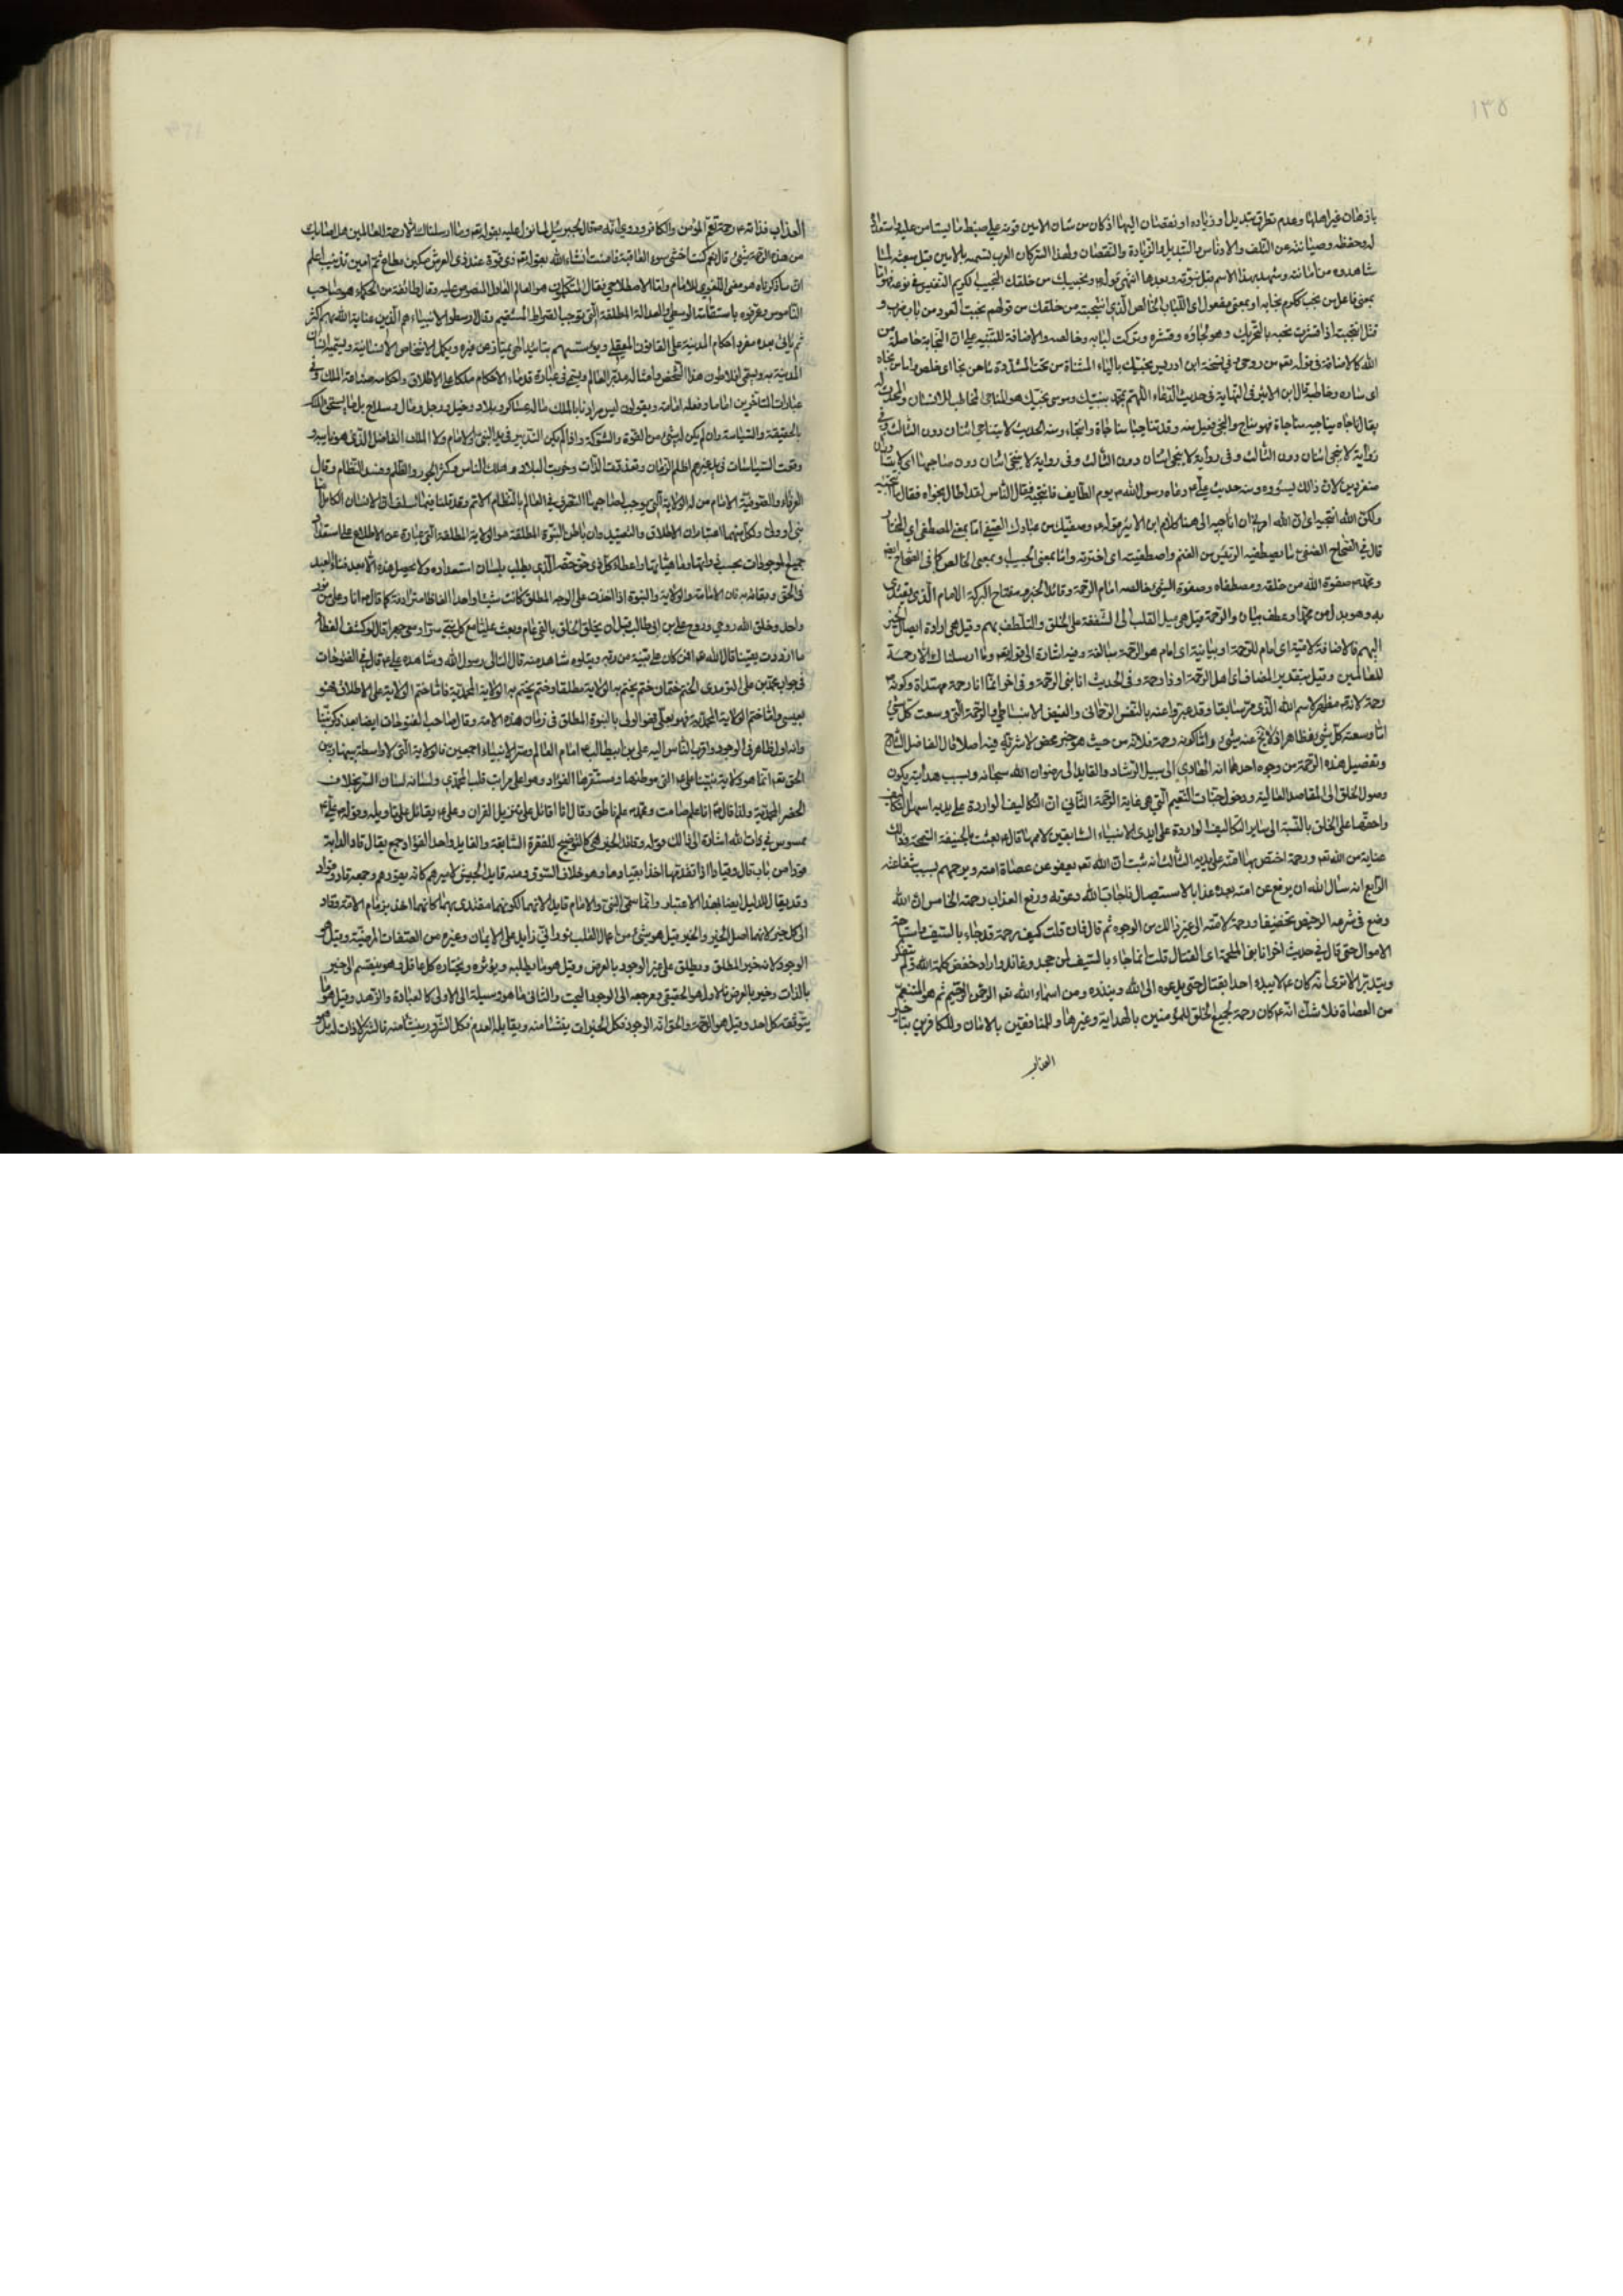 ١٣٥
باذهان غير اهلها وعدم تطرق تبديل او زياده او نقصان اليها اذ كان من شان الامين قوته على ضبط ما ليستامن عليه واستعداد
له وحفظه وصيانته عن التلف والادناس والتبديل والزيادة والنقصان ولهذا السر كان العرب تسميه بالامين قبل مبعثه لما
شاهدوه من امانته وشهد به هذا الاسم قبل نبوته وبعدها انتهى قوله ونجيبك من خلقك النجيب الكريم النفيس في نوعه فهو اما
بمعنى فاعل من نجب ككرم نجابه او بمعنى مفعول اي اللباب الخالص الذي انتجبته من خلقك من قولهم نجبت العود من باب ضرب و
قتل انتجبته اذا قشرت نجبه بالتحريك وهو لحاؤه وقشره وتركت لبابه وخالصه والاضافة للتنبيه على ان النجابة حاصلة من
الله كالاضافة في قوله تعالى من روحي وفي نسخة ابن ادريس نجيك بالياء المثناة من تحت المشددة اما من نجا اي خلص واما من نجاه
اي ساره وخاطبه قال ابن الاثير في النهاية في حديث الدعاء اللهم بمحمد نبيك وموسى نجيك هو المناجي المخاطب للانسان والمحدث له
يقال ناجاه يناجيه مناجاة فهو مناج والنجي فعيل منه وقد تناجيا مناجاة وانتجاء ومنه الحديث لا يتناجى اثنان دون الثالث وفي
رواية لا ينتجي اثنان دون الثالث وفي رواية لا ينتجي اثنان دون صاحبهما اي لا يتساران
منفردين لان ذلك يسؤوه ومنه حديث علي دعاه رسول الله يوم الطايف فانتجاه فقال الناس لقد اطال نجواه فقال ما انتجيته
ولكن الله انتجاه اي ان الله امرني ان اناجيه الى هنا كلام ابن الاثير قوله وصفيك من عبادك الصفي اما بمعنى المصطفى اي المختار
قال في الصحاح الصفي ما يصطفيه الرئيس من الغنم واصطفيته اي اخترته واما بمعنى الحبيب او بمعنى الخالص كما في الصحاح ايضا
ومحمد صفوة الله من خلقه ومصطفاه وصفوة الشيء خالصه امام الرحمة وقائد الخير ومفتاح البركة الامام الذي يقتدى
به وهو بدل من محمد او عطف بيان والرحمة قيل هي ميل القلب الى الشفقة على الخلق والتلطف بهم وقيل هي ارادة ايصال الخير
اليهم فالاضافة لامية اي امام للرحمة او بيانية اي امام هو الرحمة مبالغة وفيه اشارة الى قوله تعالى وما ارسلناك الا رحمة
للعالمين وقيل بتقدير المضاف اي اهل الرحمة او ذا رحمة وفي الحديث انا نبي الرحمة وفي اخر انما انا رحمة مهداة وكونه
رحمة لانه مظهر لاسم الله الذي مر سابقا وقد عبر واعنه بالنفس الرحماني والفيض الانبساطي والرحمة التي وسعت كل شيء
اما وسعته كل شيء فظاهر اذ لا يخرج عنه شيء واما كونه رحمة فلانه من حيث هو خير محض لا شر فيه اصلا قال الفاضل الشارح
وتفصيل هذه الرحمة من وجوه احدها انه الهادي الى سبيل الرشاد والقايد الى رضوان الله سبحانه وبسبب هدايته يكون
وصول الخلق الى المقاصد العالية ودخول جنات النعيم التي هي غاية الرحمة الثاني ان التكاليف الواردة على يديه اسهل التكاليف
واخفها على الخلق بالنسبة الى ساير التكاليف الواردة على ايدي الانبياء السابقين لاممها قال بعثت بالحنيفية السمحة وذلك
عناية من الله تعالى ورحمة اختص بها امته على يديه الثالث انه ثبت ان الله تعالى يعفو عن عصاة امته ويرحمهم بسبب شفاعته
الرابع انه سال الله ان يرفع عن امته بعده عذاب الاستيصال فاجاب الله دعوته ورفع العذاب رحمة الخامس ان الله
وضع في شرعه الرخص تخفيفا ورحمة لامته الى غير ذلك من الوجوه ثم قال فان قلت كيف رحمة قد جاء بالسيف واستباحة
الاموال حتى قال في حديث اخر انا نبي الملحمة اي القتال قلت انما جاء بالسيف لمن جحد وعاند واراد خفض كلمة الله ولم يتفكر
ويتدبر الا ترى انه كان لا يبدء احدا بقتال حتى يدعوه الى الله وينذره ومن اسماء الله تعالى الرحمن الرحيم ثم هو المنتقم
من العصاة فلا شك انه كان رحمة لجميع الخلق للمؤمنين بالهداية وغيرها وللمنافقين بالامان وللكافرين بتاخير
العذاب
العذاب فذاته رحمة تعم المؤمن والكافر وروي انه قال لجبرئيل لما نزل عليه بقوله تعالى وما ارسلناك الا رحمة للعالمين هل اصابك
من هذه الرحمة شيء قال نعم كنت اخشى سوء العاقبة فامنت انشاء الله بقوله تعالى ذي قوة عند ذي العرش مكين مطاع ثم امين تذنيب اعلم
ان ما ذكرناه هو معنى اللغوي للامام واما الاصطلاحي فقال المتكلمون هو العالم العادل المنصوص عليه وقال طائفة من الحكماء هو صاحب
الناموس وعرفوه باستقامة الوسطى والعدالة المطلقة التي توجب الصراط المستقيم وقال ارسطو الانبياء هم الذين عناية الله بهم اكثر
المدينة به ويسمى افلاطون هذا الشخص وامثاله مدبر العالم ويسمى في عبارة قدماء الاحكام ملكا على الاطلاق واحكامه صناعة الملك وفي
عبارات المتاخرين اماما وفعله امامة ويقولون ليس مرادنا بالملك من له عساكر وبلاد وخيل ورجل ومال وسلاح بل ما يستحق الملك
بالحقيقة والسياسة وان لم يكن له شيء من القوة والشوكة واذا لم يكن التدبير في يد النبي والامام ولا الملك الفاضل الذي هو نايبه و
وقعت السياسات في يد غيرهم اظلم الزمان وخربت البلاد وهلك الناس وكثر الجور والظلم وفسد النظام وقال
العرفاء والصوفية الامام من له الولاية التي يوجب لصاحبها التصرف في العالم بالنظام الاتم وقد قلنا فيما سلف ان الانسان الكامل اما
نبي او ولي ولكل منهما اعتباران الاطلاق والتقييد وان باطن النبوة المطلقة هو الولاية المطلقة التي عبارة عن الاطلاع على استعداد
جميع الموجودات بحسب ذواتها وماهياتها واعطاء كل ذي حق حقه الذي يطلب بلسان استعداده ولا يحصل هذه الا بعد فناء العبد
في الحق وبقائه به فان الامامة والولاية والنبوة اذا اخذت على الوجه المطلق كانت شيئا واحدا الفاظا مترادفة كما قال انا وعلي من نور
واحد وخلق الله روحي وروح علي بن ابي طالب قبل ان يخلق الخلق بالفي عام وبعث عليا مع كل نبي سرا ومعي جهرا قال لو كشف الغطاء
ما ازددت يقينا قال الله تعالى افمن كان على بينة من ربه ويتلوه شاهد منه قال التالي رسول الله وشاهده علي قال في الفتوحات
في جواب محمد بن علي الترمذي الختم ختمان ختم يختم به الولاية مطلقا وختم يختم به الولاية المحمدية فاما ختم الولاية على الاطلاق فهو
عيسى واما ختم الولاية المحمدية فهو الولي بالنبوة المطلق في زمان هذه الامة وقال صاحب الفتوحات ايضا بعد ذكر نبينا
وانه اول ظاهر في الوجود واقرب الناس اليه علي بن ابيطالب امام العالم وسر الانبياء اجمعين فالولاية التي لا واسطة بينها وبين
الحق تعالى انما هو ولاية نبينا التي موطنها ومستقرها الفؤاد وهو اعلى مراتب قلب المحمدي ولسانه لسان السر بخلاف
الحضر المحمدية ولذا قال انا علم صامت ومحمد علم ناطق وقال انا اقاتل على تنزيل القران وعلي يقاتل على تاويله وقوله علي
ممسوس في ذات الله اشارة الى ذلك قوله وقائد الخير هي كالتوضيح للفقرة السابقة والقايد واحد القواد وجمع يقال قاد الدابة
قودا من باب قال وقيادا اذا تقدمها اخذا بقيادها وهو خلاف السوق ومنه قايد الجيش لاميرهم كانه يقودهم وجمعه قادة وقواد
وقد يقال للدليل ايضا بهذا الاعتبار وانما سمي النبي والامام قايدا لانهما لكونهما مقتدى بهما كانهما اخذ بزمام الامة وقاد
الى كل خير لانهما اصل الخير والخير قيل هو شيء من اعمال القلب نوراني زايد على الايمان وغيره من الصفات المرضية وقيل هو
الوجود لانه خير المطلق ويطلق على غير الوجود بالعرض وقيل هو ما يطلبه ويؤثره ويختاره كل عاقل وهو ينقسم الى خير
بالذات وخير بالعرض فالاول هو الحقيقي ومرجعه الى الوجود البحت والثاني ما هو وسيلة الى الاول كالعبادة والزهد وقيل هو ما
يتوقعه كل احد وقيل والحق انه الوجود فكل الخيرات ينشا منه ويقابله العدم فكل الشرور ينشا منه